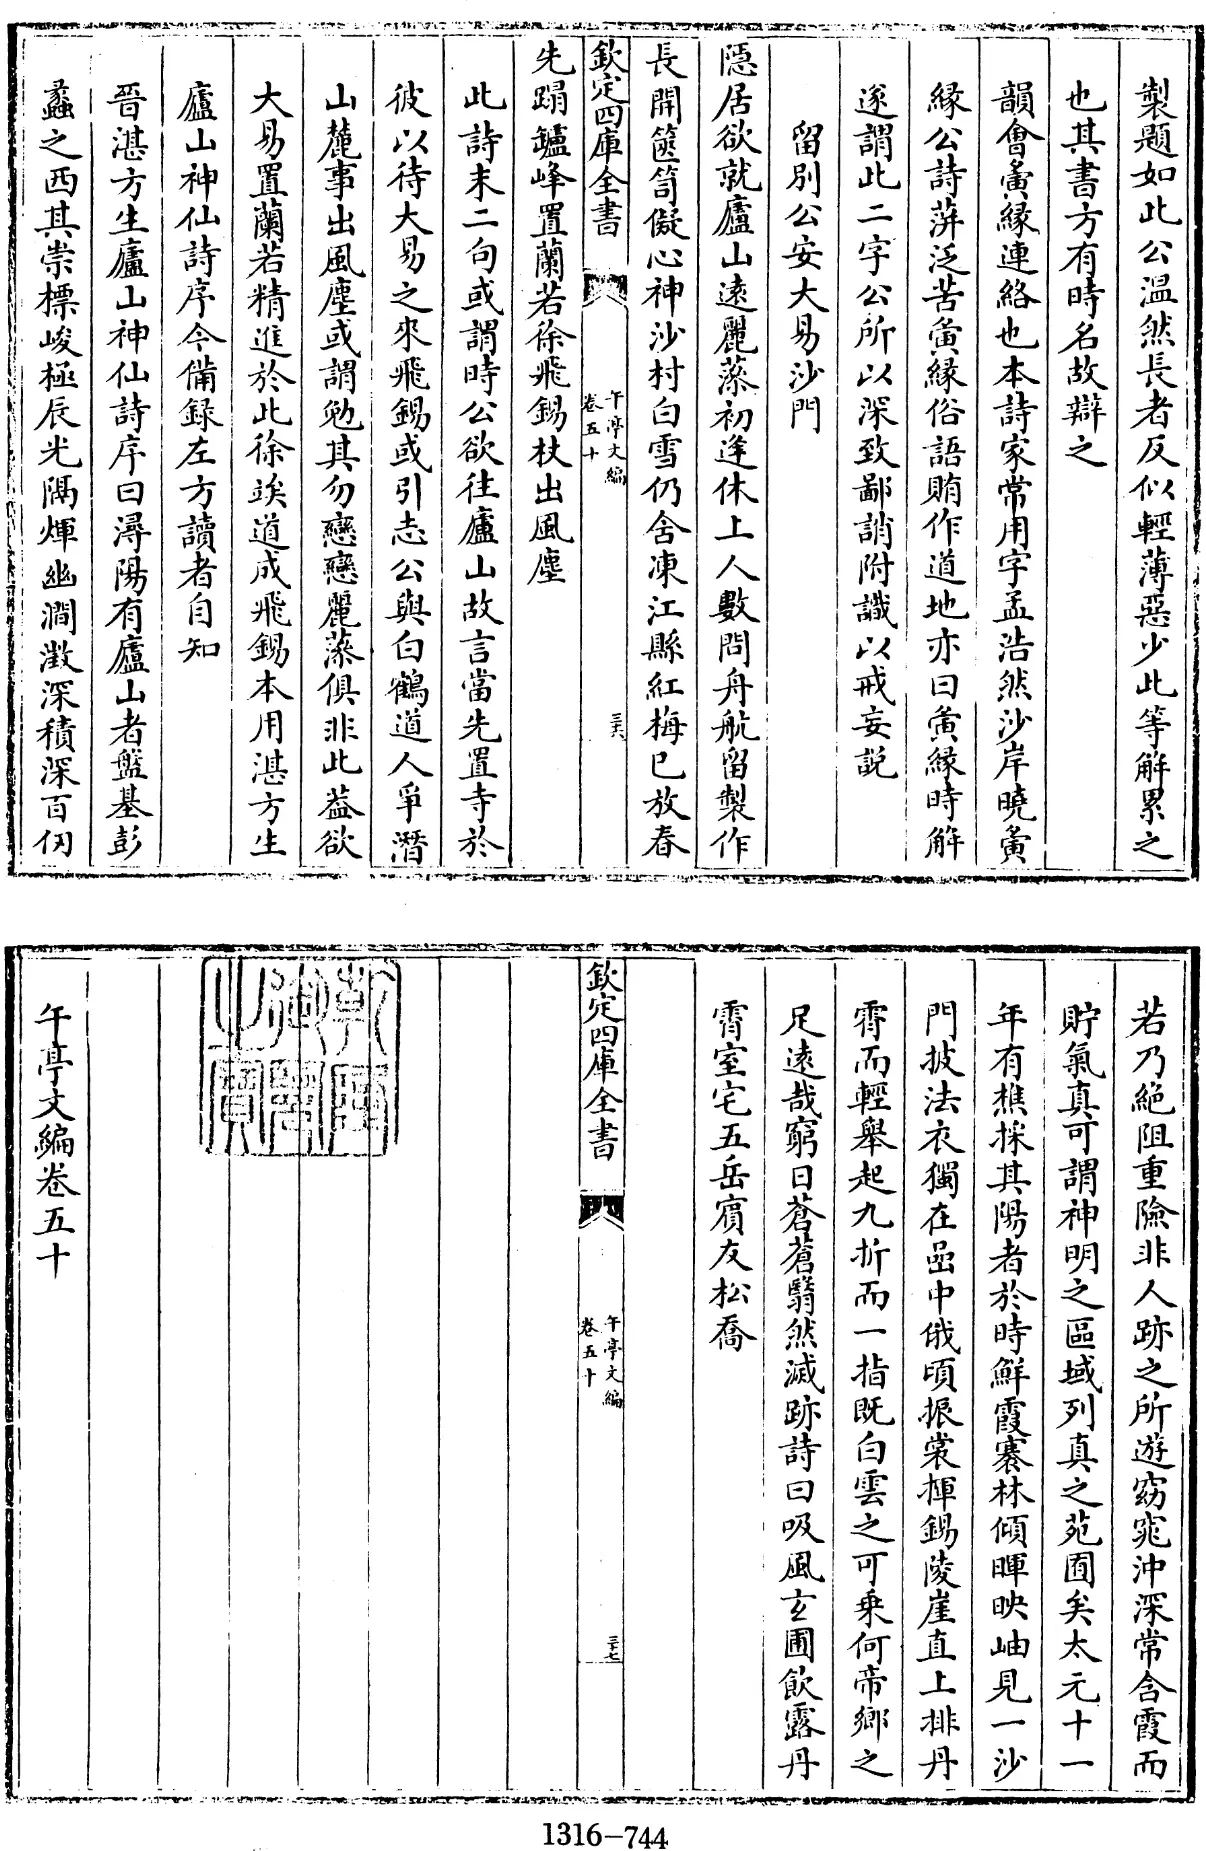 製題如此公温然長者反似輕薄惡少此等解累之
也其書方有時名故辯之
韻會夤緣連絡也本詩家常用字孟浩然沙岸曉夤
緣公詩萍泛苦夤緣俗語賄作道地亦曰夤緣時解
遂謂此二字公所以深致鄙誚附識以戒妄説
留別公安大易沙門
隱居欲就廬山遠麗藻初逢休上人數問舟航留製作
長開篋笥儗心神沙村白雪仍含凍江縣紅梅已放春
欽定四庫全書
午亭文編
卷五十
三六
先蹋鑪峰置蘭若徐飛錫杖出風塵
此詩末二句或謂時公欲往廬山故言當先置寺於
彼以待大易之來飛錫或引志公與白鶴道人爭潛
山麓事出風塵或謂勉其勿戀戀麗藻俱非此蓋欲
大易置蘭若精進於此徐竢道成飛錫本用湛方生
廬山神仙詩序今備録左方讀者自知
晉湛方生廬山神仙詩序曰潯陽有廬山者盤基彭
蠡之西其崇標峻極辰光隅煇幽澗澂深積深百仞
若乃絶阻重險非人跡之所遊窈窕沖深常含霞而
貯氣真可謂神明之區域列真之苑囿矣太元十一
年有樵採其陽者於時鮮霞褰林傾暉映岫見一沙
門披法衣獨在嵒中俄頃振裳揮錫陵崖直上排丹
霄而輕舉起九折而一指既白雲之可乗何帝鄉之
足遠哉窮日蒼蒼翳然滅跡詩曰吸風玄圃飲露丹
霄室宅五岳賓友松喬
欽定四庫全書
午亭文編
卷五十
三十七
乾隆御覽之寶
午亭文編卷五十
1316-744